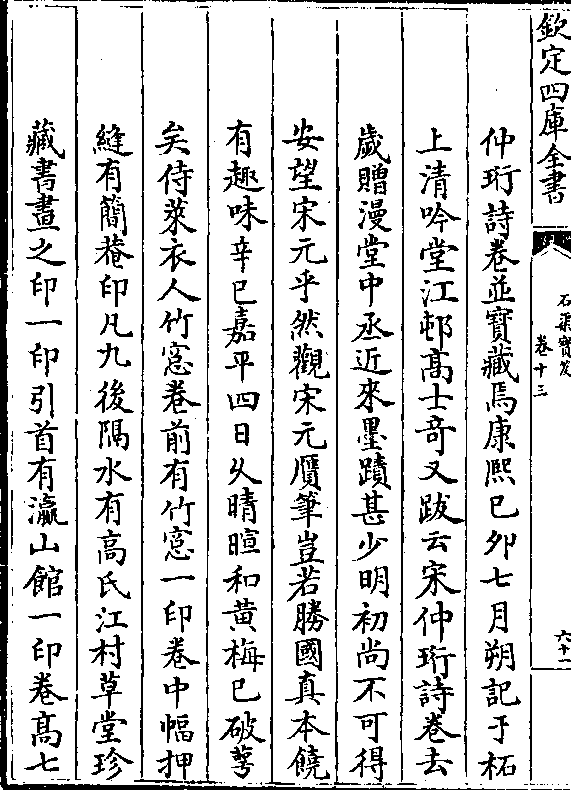 欽定四庫全書
石渠寶笈
卷十三
六十一
仲珩詩卷並寶藏焉康熙己卯七月朔記于柘
上清吟堂江邨髙士竒又跋云宋仲珩詩卷去
歲贈漫堂中丞近來墨蹟甚少明初尚不可得
安望宋元乎然觀宋元贋筆豈若勝國真本饒
有趣味辛巳嘉平四日久晴暄和黄梅已破萼
矣侍萊衣人竹窓卷前有竹窓一印卷中幅押
縫有簡菴印凡九後隔水有高氏江村草堂珍
藏書畫之印一印引首有瀛山館一印卷髙七